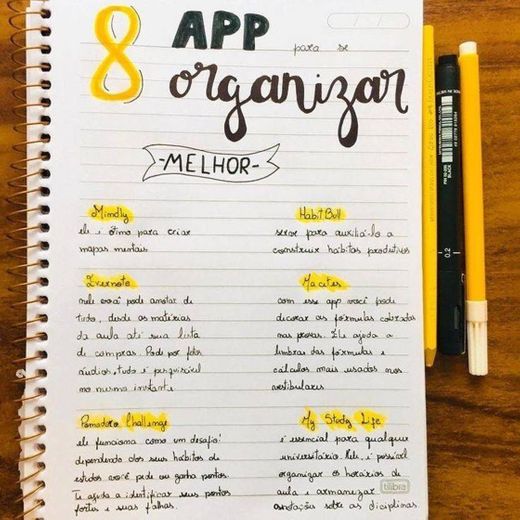 8 APP para se
organizar
-MELHOR-
Mindly
ele é ótimo para criar
mapas mentais
HabitBull
serve para auxiliá-lo a
construir hábitos produtivos
Evernote
nele você pode anotar de
tudo, desde as matérias
da aula até sua lista
de compras. Pode por fotos
áudios, tudo é pesquisável
no mesmo instante
Macetes
com esse app você pode
decorar as fórmulas cobradas
nas provas. Ele ajuda a
lembrar das fórmulas e
cálculos mais usados nos
vestibulares
Pomodoro Challenge
ele funciona como um desafio!
dependendo dos seus hábitos de
estudos você pede ou ganha pontos.
Te ajuda a identificar seus pontos
fortes e suas falhas.
My Study Life
é essencial para qualquer
universitário. Nele, é possível
organizar os horários de
aula e armanizar
anotações sobre as disciplinas
tilibra
0.2
BLACK